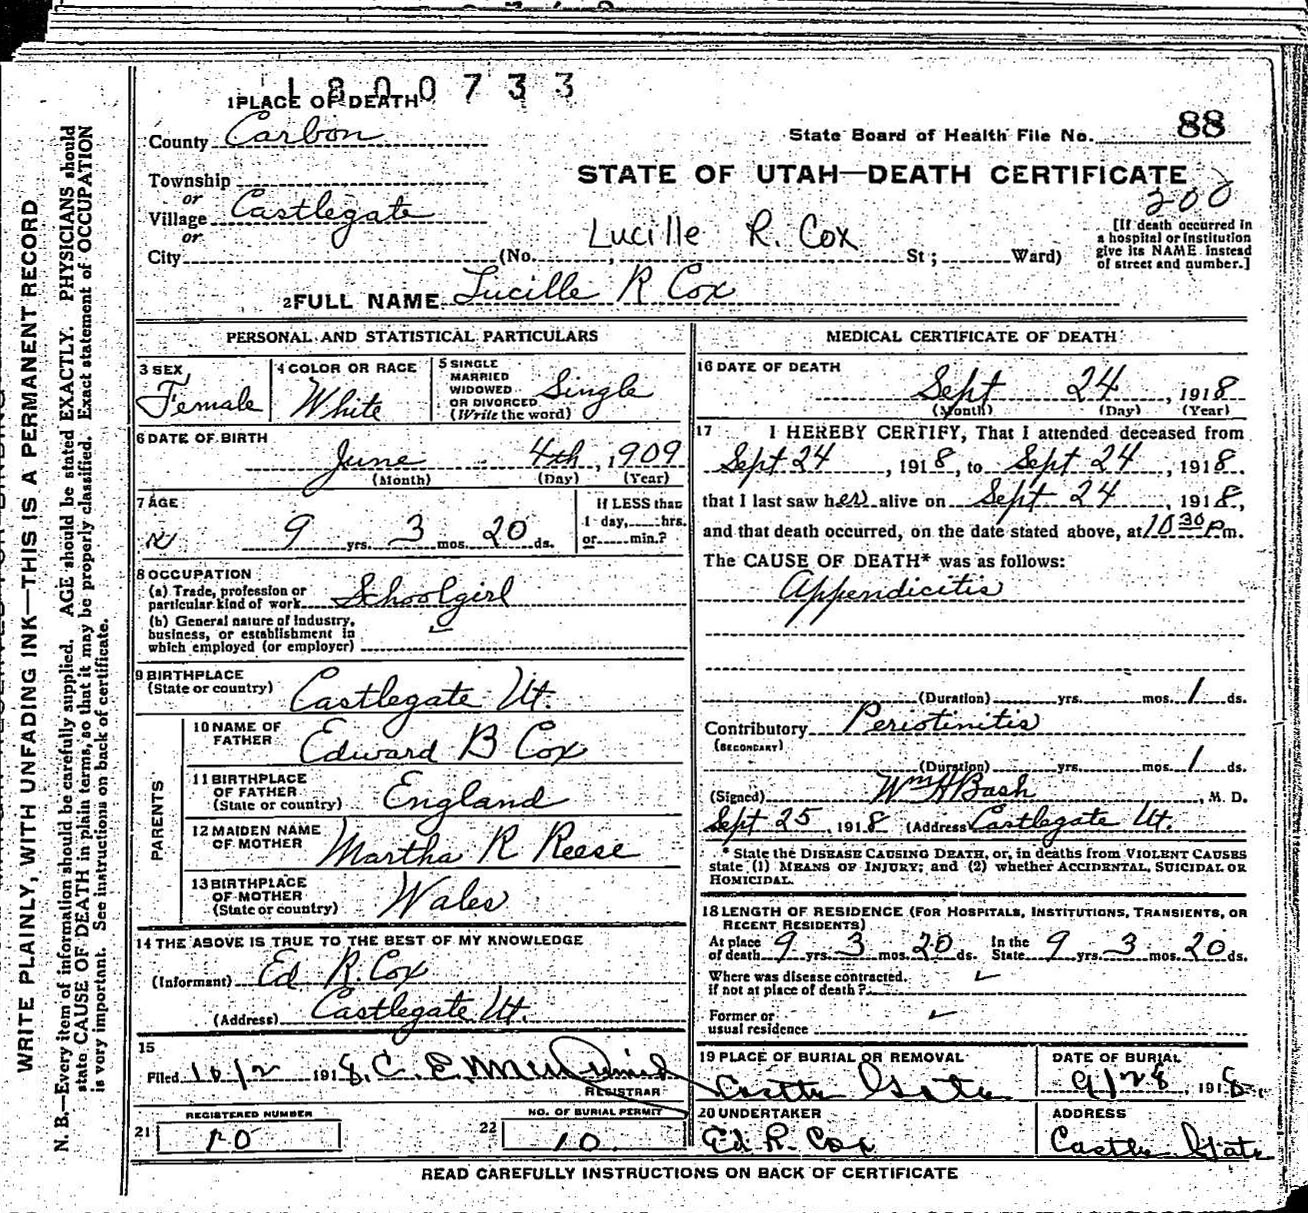 1800733
1 PLACE OF DEATH
County Carbon
State Board of Health File No. 88
Township
or
STATE OF UTAH—DEATH CERTIFICATE
200
Village Castlegate
or
City (No. , Lucille R. Cox St ; Ward)
[If death occurred in
a hospital or institution
give its NAME instead
of street and number.]
2 FULL NAME Lucille R Cox
PERSONAL AND STATISTICAL PARTICULARS
3 SEX
Female
4 COLOR OR RACE
White
5 SINGLE
MARRIED
WIDOWED
OR DIVORCED
(Write the word)
Single
6 DATE OF BIRTH
June 4th, 1909
(Month) (Day) (Year)
7 AGE
9 yrs. 3 mos. 20 ds.
If LESS than
1 day, hrs.
or min.?
8 OCCUPATION
(a) Trade, profession or
particular kind of work Schoolgirl
(b) General nature of Industry,
business, or establishment in
which employed (or employer)
9 BIRTHPLACE
(State or country) Castlegate Ut.
PARENTS
10 NAME OF
FATHER Edward B Cox
11 BIRTHPLACE
OF FATHER
(State or country) England
12 MAIDEN NAME
OF MOTHER Martha R Reese
13 BIRTHPLACE
OF MOTHER
(State or country) Wales
14 THE ABOVE IS TRUE TO THE BEST OF MY KNOWLEDGE
(Informant) Ed R. Cox
(Address) Castlegate Ut.
15
Filed 10/2 1918, C. E.
REGISTRAR
REGISTERED NUMBER
21
NO. OF BURIAL PERMIT
22 10
MEDICAL CERTIFICATE OF DEATH
16 DATE OF DEATH
Sept 24, 1918
(Month) (Day) (Year)
17 I HEREBY CERTIFY, That I attended deceased from
Sept 24, 1918, to Sept 24, 1918.
that I last saw her alive on Sept 24, 1918,
and that death occurred, on the date stated above, at 10 30 P.m.
The CAUSE OF DEATH* was as follows:
Appendicitis
(Duration) yrs. mos. 1 ds.
Contributory Periotinitis
(SECONDARY)
(Duration) yrs. mos. 1 ds.
(Signed) Wm H Bash, M. D.
Sept 25, 1918 (Address) Castlegate Ut.
* State the DISEASE CAUSING DEATH, or, in deaths from VIOLENT CAUSES
state (1) MEANS OF INJURY; and (2) whether ACCIDENTAL, SUICIDAL OR
HOMICIDAL.
18 LENGTH OF RESIDENCE (FOR HOSPITALS, INSTITUTIONS, TRANSIENTS, OR
RECENT RESIDENTS)
At place
of death 9 yrs. 3 mos. 20 ds. In the
State 9 yrs. 3 mos. 20 ds.
Where was disease contracted.
if not at place of death?
Former or
usual residence
19 PLACE OF BURIAL OR REMOVAL
Castle Gate
DATE OF BURIAL
9/28, 1918.
20 UNDERTAKER
Ed. R. Cox
ADDRESS
Castle Gate
READ CAREFULLY INSTRUCTIONS ON BACK OF CERTIFICATE
WRITE PLAINLY, WITH UNFADING INK—THIS IS A PERMANENT RECORD
N. B.—Every item of information should be carefully supplied. AGE should be stated EXACTLY. PHYSICIANS should
state CAUSE OF DEATH in plain terms, so that it may be properly classified. Exact statement of OCCUPATION
is very important. See instructions on back of certificate.